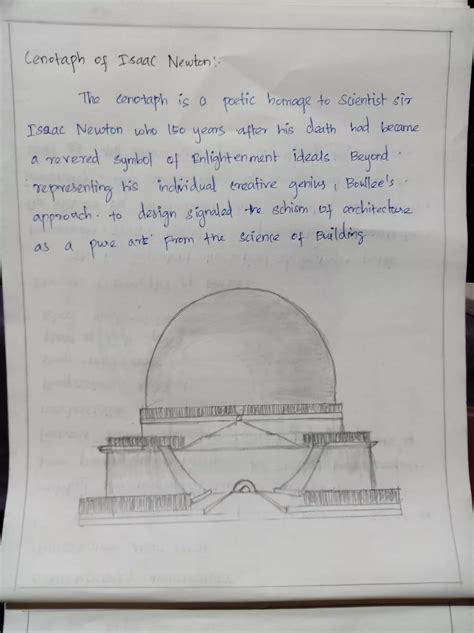 Cenotaph of Isaac Newton:-
The cenotaph is a poetic homage to scientist sir
Isaac Newton who 150 years after his death had became
a rovered symbol of Enlightenment ideals. Beyond
representing his individual creative genius, Boullee's
approach to design signaled the schism of architecture
as a pure art from the science of Building